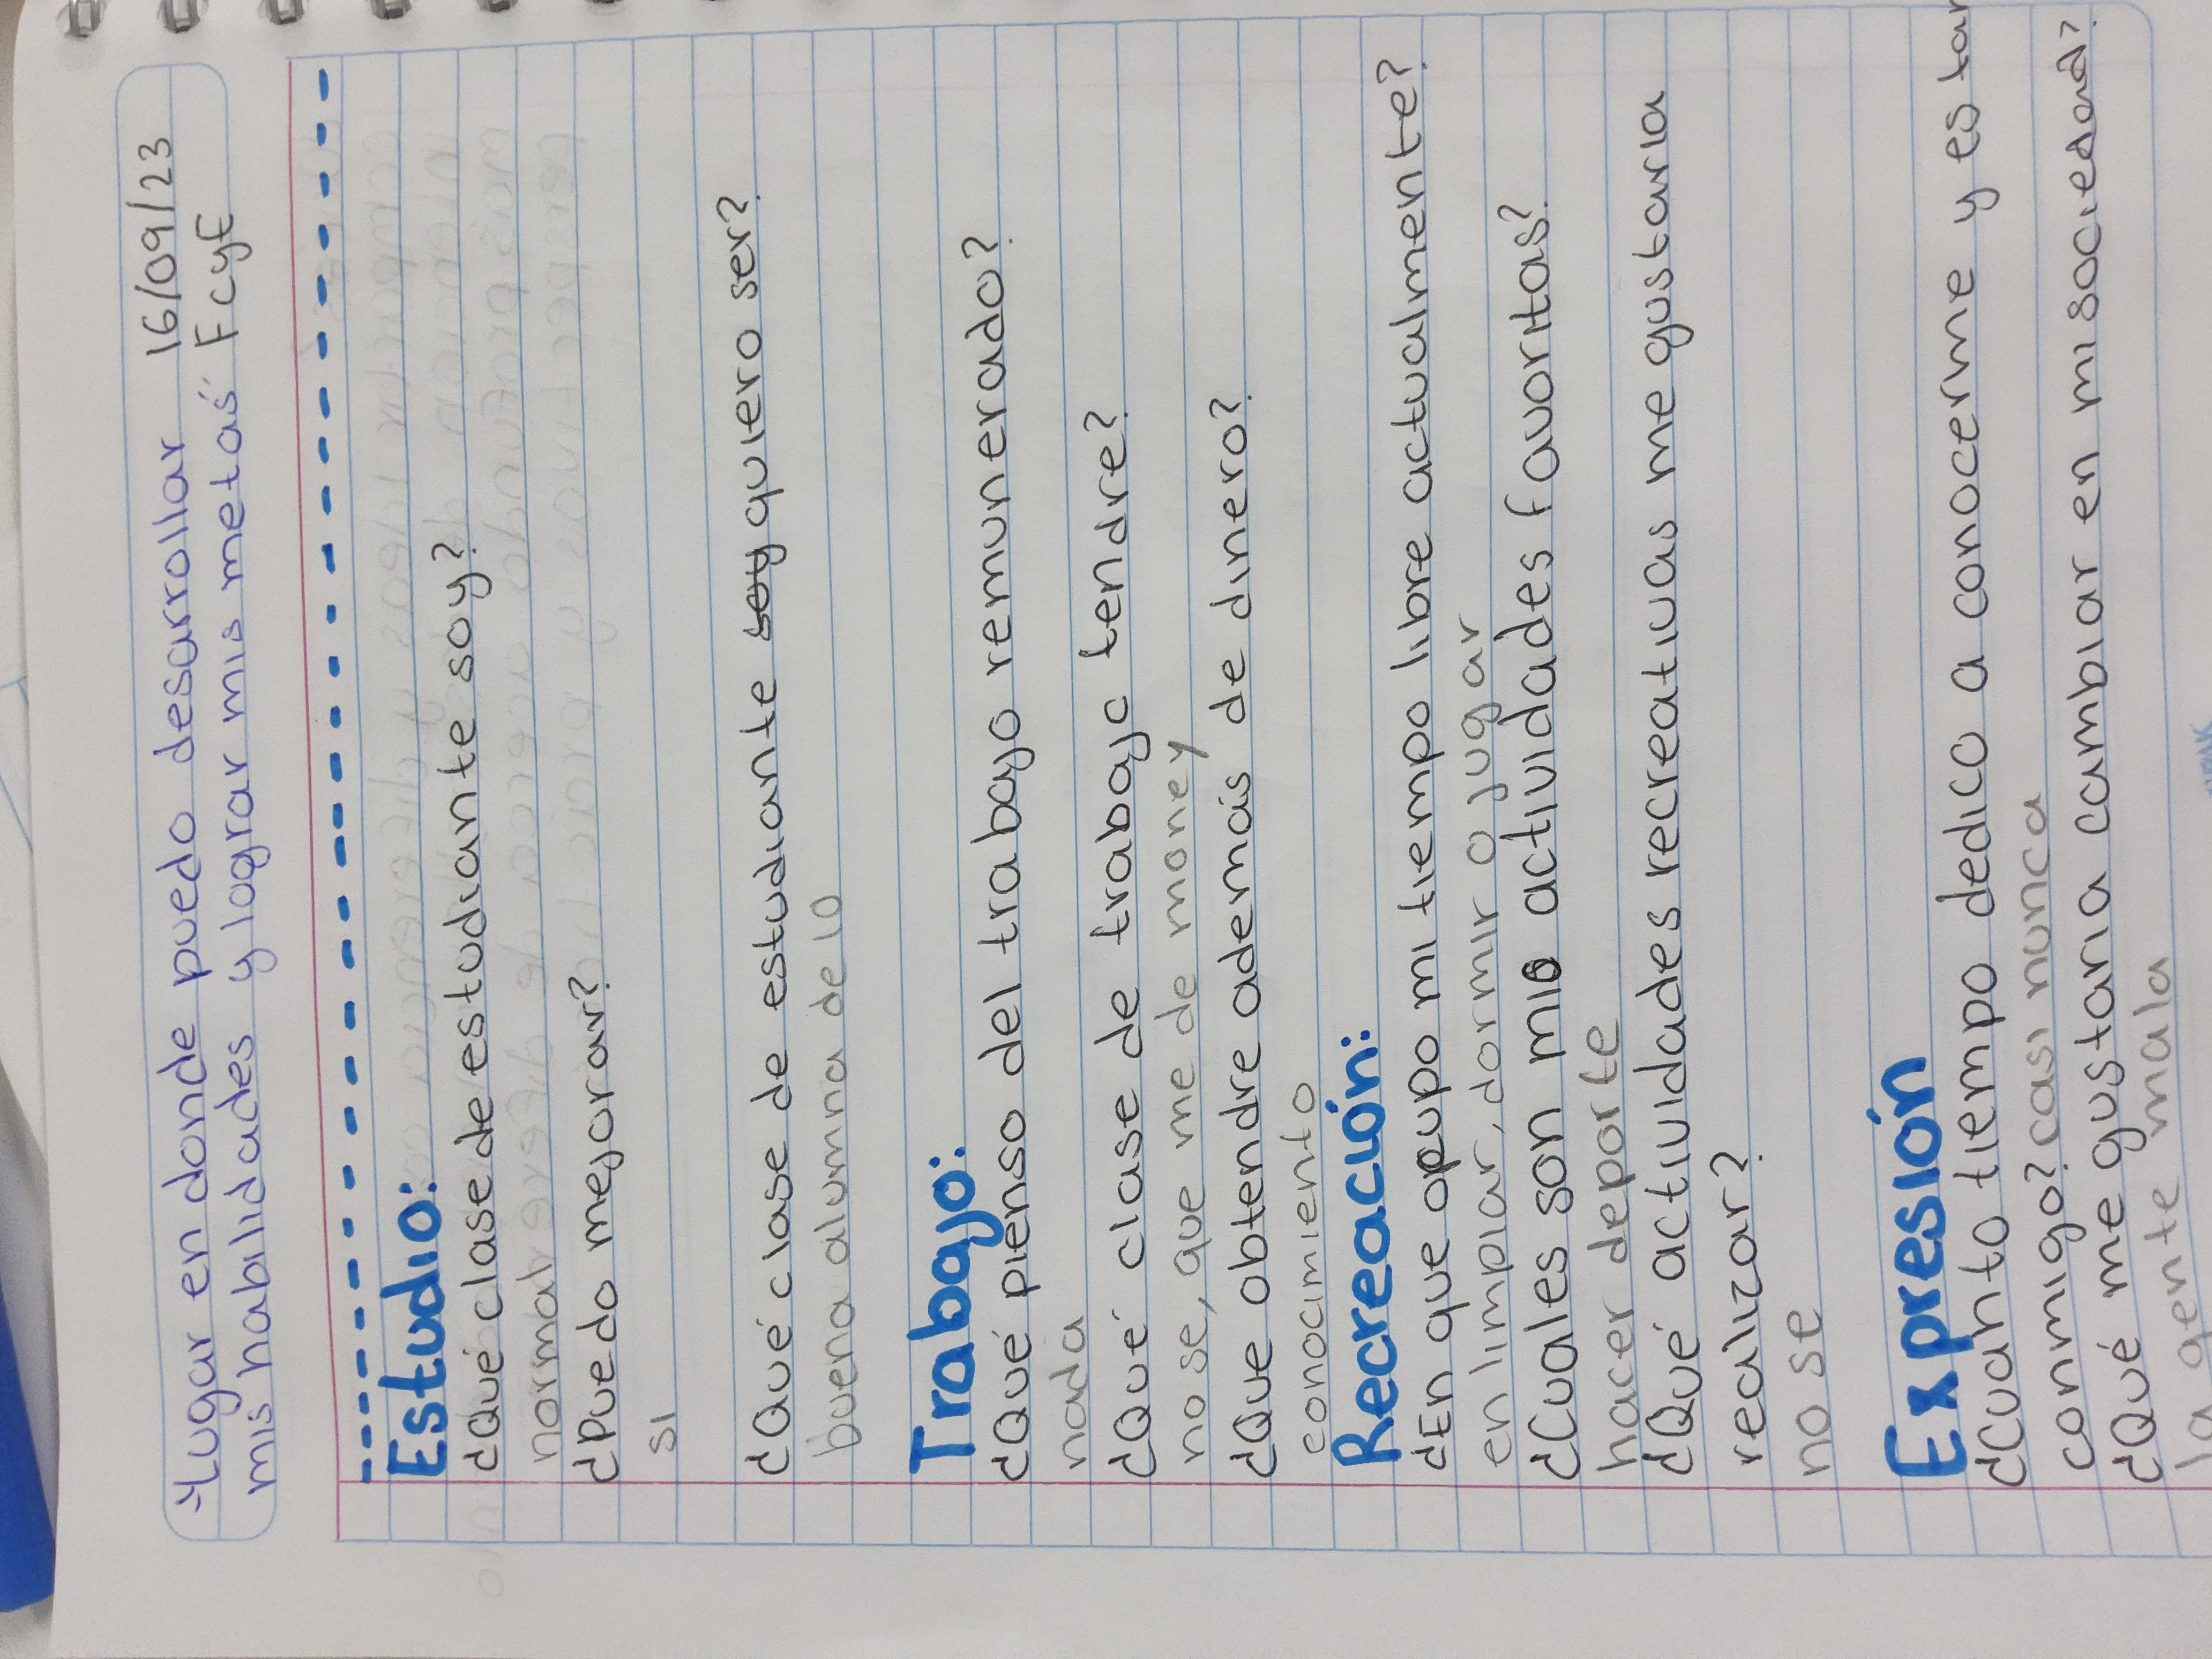 "Lugar en donde puedo desarrollar 16/09/23
mis habilidades y lograr mis metas" FcyE
Estudio:
¿Qué clase de estudiante soy?
normal
¿Puedo mejorar?
si
¿Qué clase de estudiante soy quiero ser?
buena alumna de 10
Trabajo:
¿Qué pienso del trabajo remunerado?
nada
¿Qué clase de trabajo tendre?
no se, que me de money
¿Que obtendre además de dinero?
conocimiento
Recreación:
¿En que opupo mi tiempo libre actualmente?
en limpiar, dormir o jugar
¿Cuales son mis actividades favoritas?
hacer deporte
¿Qué actividades recreativas me gustaria
realizar?
no se
Expresión
¿Cuanto tiempo dedico a conocerme y estar
conmigo? casi nunca
¿Qué me gustaria cambiar en mi sociedad?
la gente mala